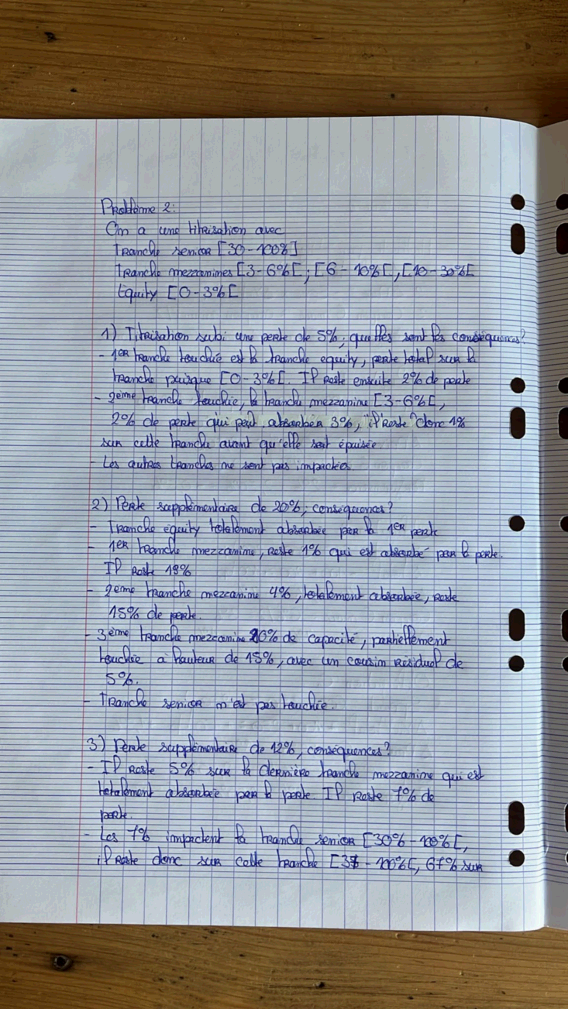 Problème 2:
On a une titrisation avec
Tranche senior [30-100%]
Tranche mezzanines [3-6%[ ; [6-10%[ , [10-30%[
Equity [0-3%[
1) Titrisation subi une perte de 5%, quelles sont les conséquences?
- 1er tranche touchée est la tranche equity, perte total sur la
tranche puisque [0-3%[. Il reste ensuite 2% de perte
- 2ème tranche touchée, la tranche mezzanine [3-6%[,
2% de perte qui peut absorber 3%, "il reste" donc 1%
sur cette tranche avant qu'elle soit épuisée
- Les autres tranches ne sont pas impactées
2) Perte supplémentaire de 20%, conséquences?
- Tranche equity totalement absorbée par la 1er perte
- 1er tranche mezzanine, reste 1% qui est absorbé par la perte.
Il reste 19%
- 2ème tranche mezzanine 4%, totalement absorbée, reste
15% de perte.
- 3ème tranche mezzanine 20% de capacité, partiellement
touchée à hauteur de 15%, avec un coussin résiduel de
5%.
- Tranche senior n'est pas touchée.
3) Perte supplémentaire de 12%, conséquences?
- Il reste 5% sur la dernière tranche mezzanine qui est
totalement absorbée par la perte. Il reste 7% de
perte.
- Les 7% impactent la tranche senior [30%-100%[,
il reste donc sur cette tranche [37-100%[, 67% sur